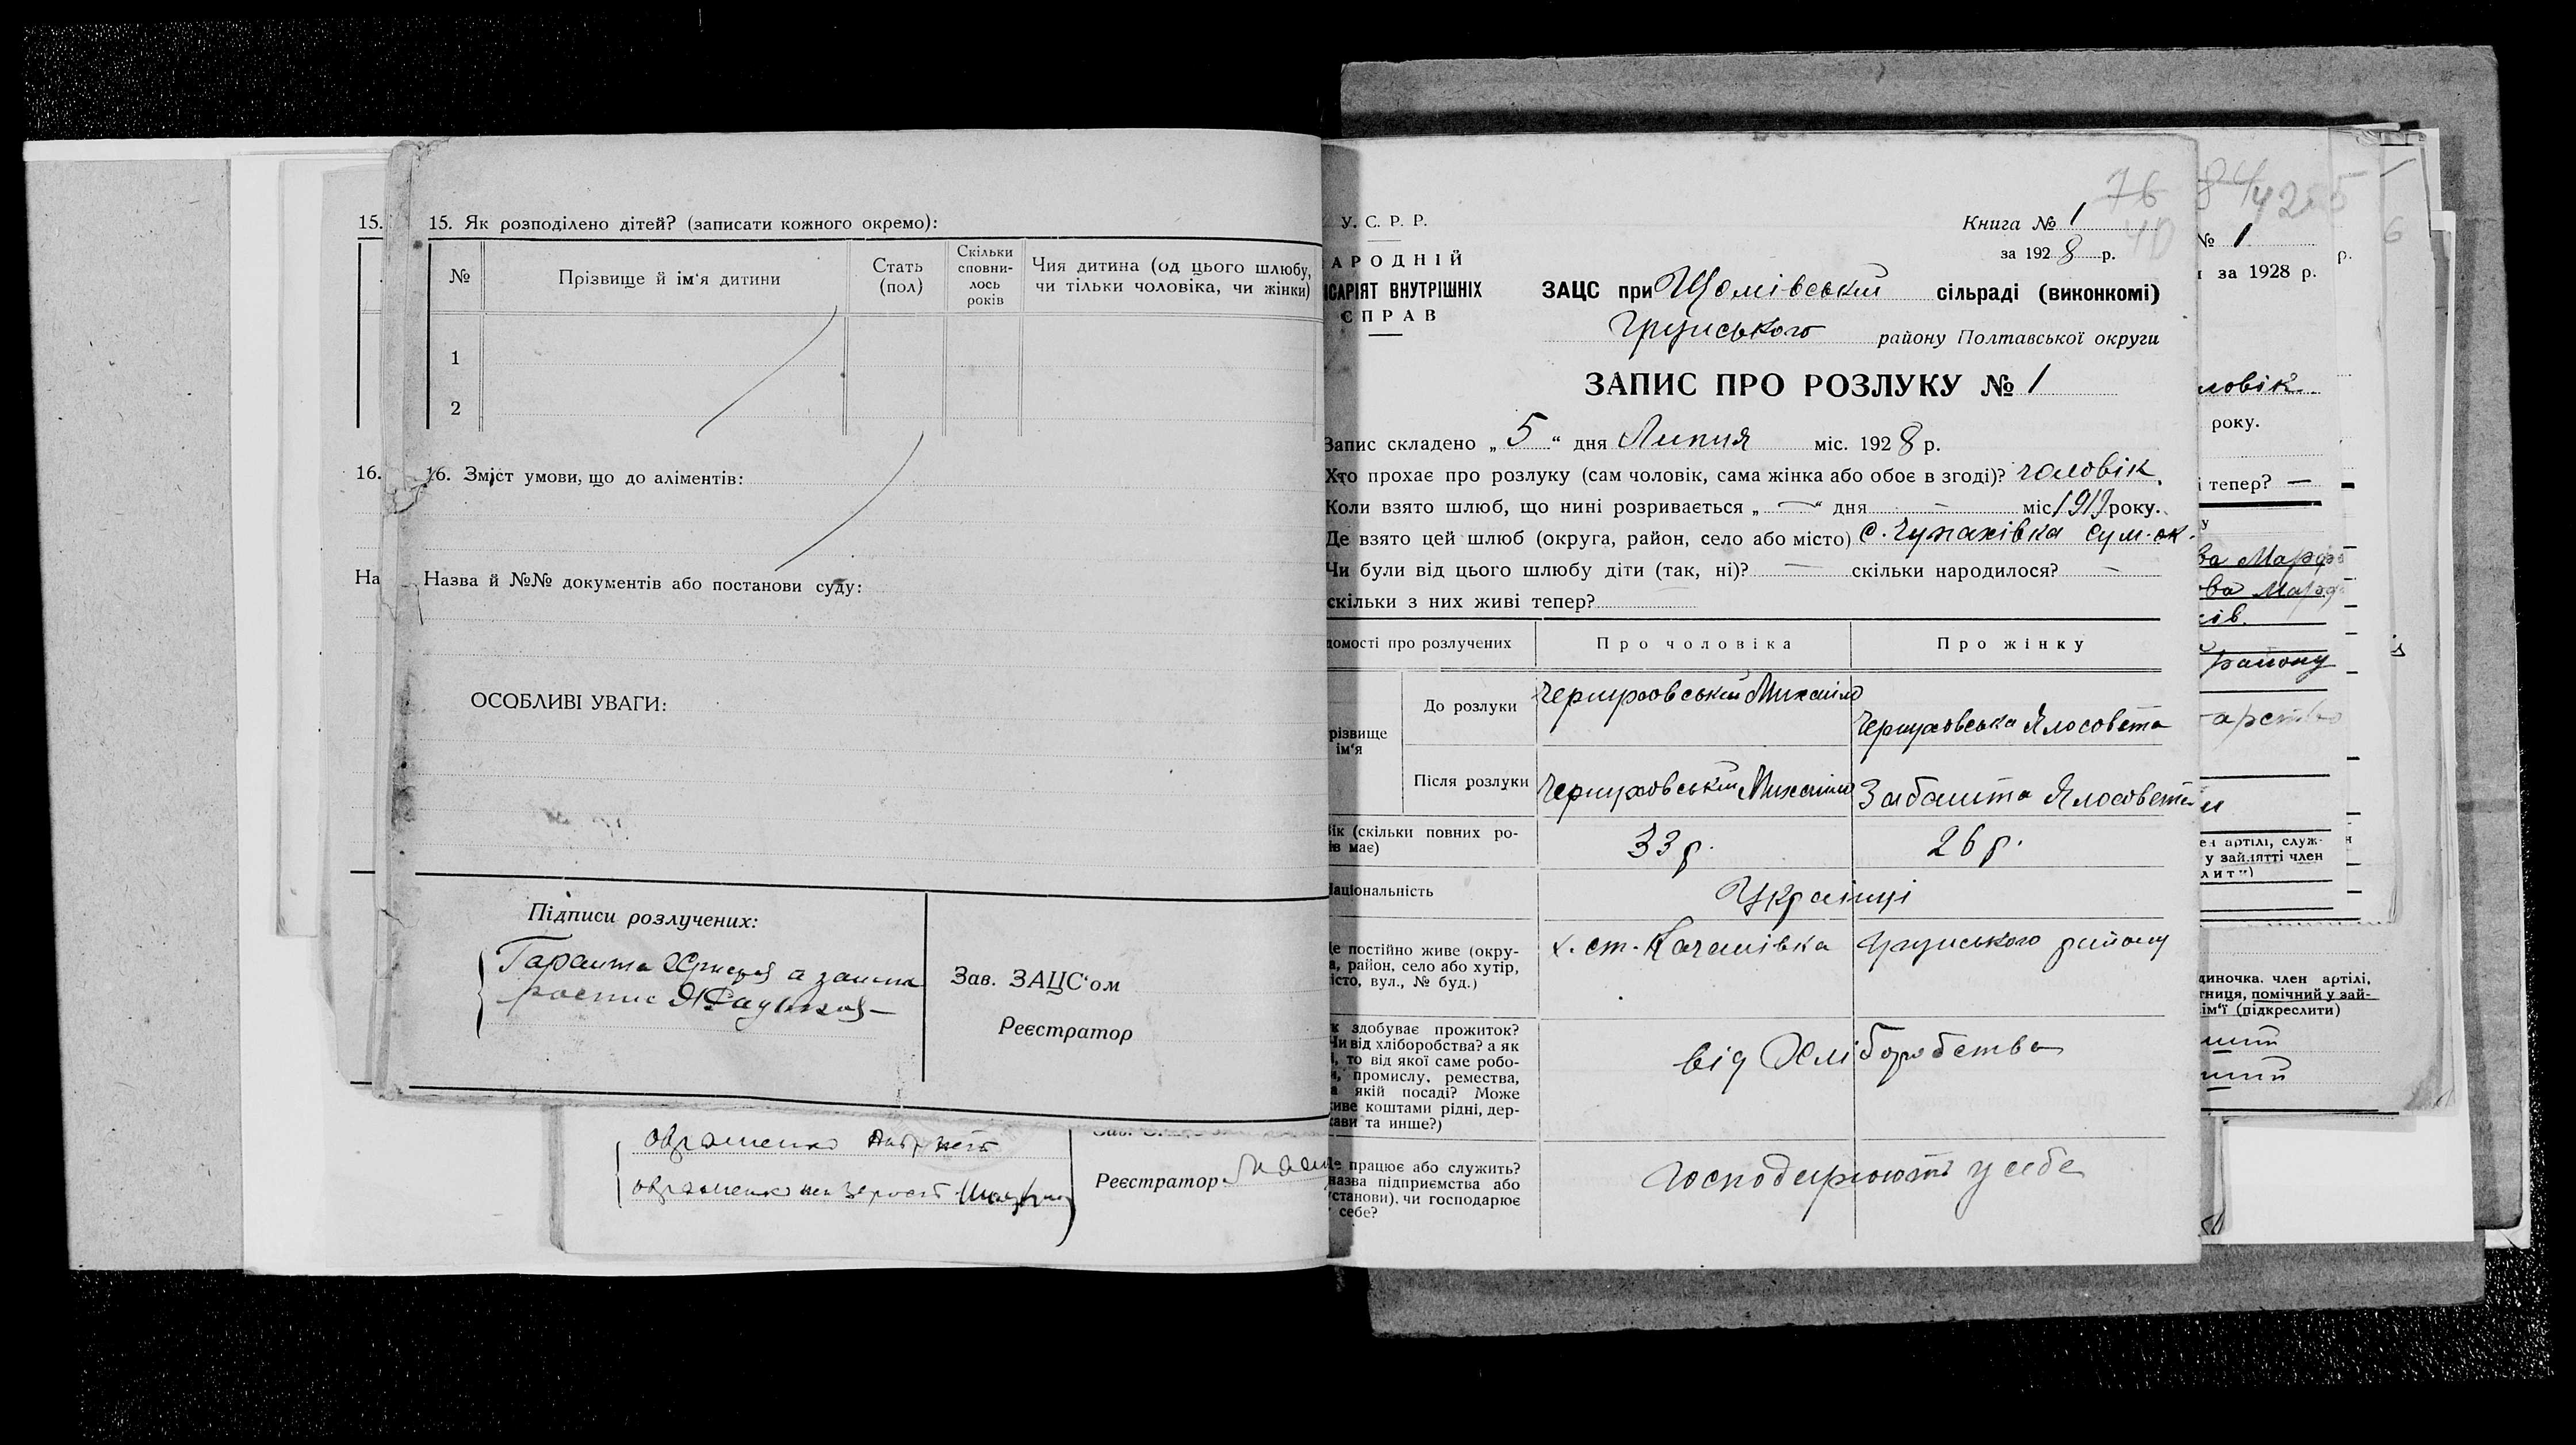 15. Як розподілено дітей? (записати кожного окремо):
№
Прізвище й ім'я дитини
Стать (пол)
Скільки сповни-лось років
Чия дитина (од цього шлюбу, чи тільки чоловіка, чи жінки)
1
2
16. Зміст умови, що до аліментів:
Назва й №№ документів або постанови суду:
ОСОБЛИВІ УВАГИ:
Підписи розлучених:
Зав. ЗАЦС'ом
Реєстратор
Реєстратор
15.
16.
На
76
У. С. Р. Р.
Книга № 1
АРОДНІЙ
за 1928 р.
ІСАРІЯТ ВНУТРІШНІХ
СПРАВ
ЗАЦС при Щомівській сільраді (виконкомі)
Грунського району Полтавської округи
ЗАПИС ПРО РОЗЛУКУ № 1
Запис складено „ 5 “ дня Липня міс. 1928 р.
Хто прохає про розлуку (сам чоловік, сама жінка або обоє в згоді)? чоловік.
Коли взято шлюб, що нині розривається „ — “ дня — міс 1919 року.
Де взято цей шлюб (округа, район, село або місто) с. Чупахівка Сум. ок.
Чи були від цього шлюбу діти (так, ні)? — скільки народилося? —
скільки з них живі тепер?
домості про розлучених
Про чоловіка
Про жінку
різвище ім'я
До розлуки
Черняховський Михайло
Черняховська Ялосовета
Після розлуки
Черняховський Михайло
Забашта Ялосовета
ік (скільки повних ро-
ів має)
33 р.
26 р.
Національність
Українці
Де постійно живе (окру-
а, район, село або хутір,
місто, вул., № буд.)
х. ст. Качанівка Грунського району
к здобуває прожиток?
Чи від хліборобства? а як
і, то від якої саме робо-
и, промислу, ремества,
а якій посаді? Може
живе коштами рідні, дер-
жави та инше?)
від Хліборобства
Де працює або служить?
назва підприємства або
установи), чи господарює
у себе?
Господарюють у себе
№ 1
за 1928 р.
р.
ловік.
року.
і тепер? —
району
ен артілі, служ-
у зайнятті член
лит")
диночка, член артілі,
тниця, помічний у зай-
ім'ї (підкреслити)